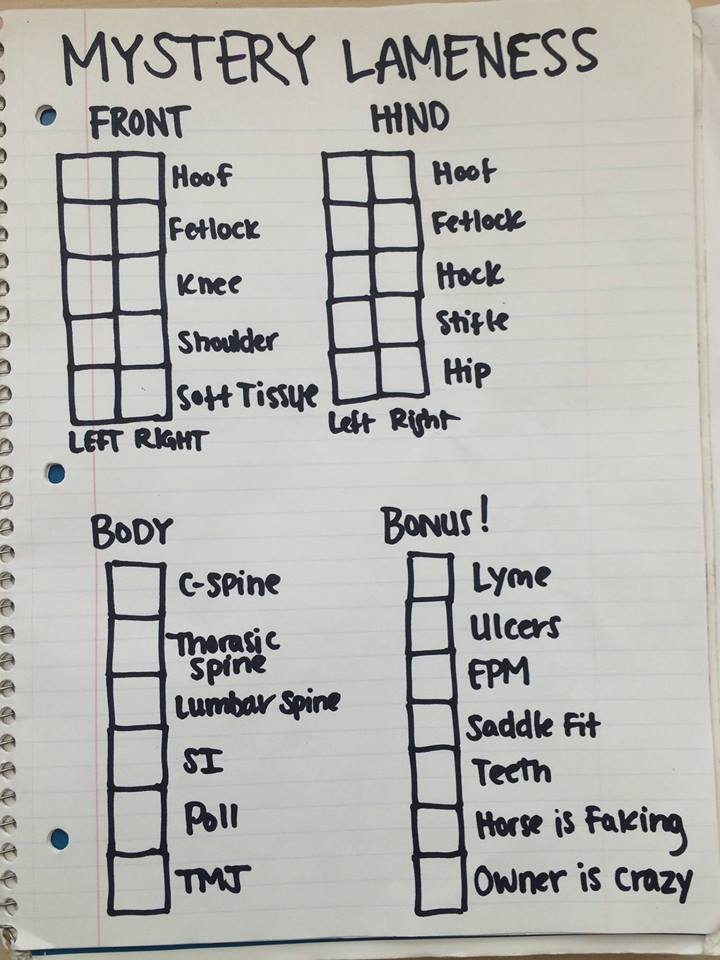 MYSTERY LAMENESS
FRONT
Hoof
Fetlock
Knee
Shoulder
Soft Tissue
LEFT RIGHT
HIND
Hoof
Fetlock
Hock
Stifle
Hip
Left Right
BODY
C-spine
Thorasic
spine
Lumbar Spine
SI
Poll
TMJ
BONUS!
Lyme
Ulcers
EPM
Saddle Fit
Teeth
Horse is Faking
Owner is crazy